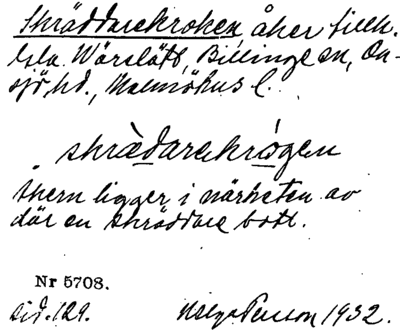 Skräddarekroken åker tillh.
Lilla Wärslätt, Billinge sn, On-
sjö hd., Malmöhus l.
skrædarekrogen
åkern ligger i närheten av
där en skräddare bott.
Nr 5708.
sid. 129. Helge Persson 1932.